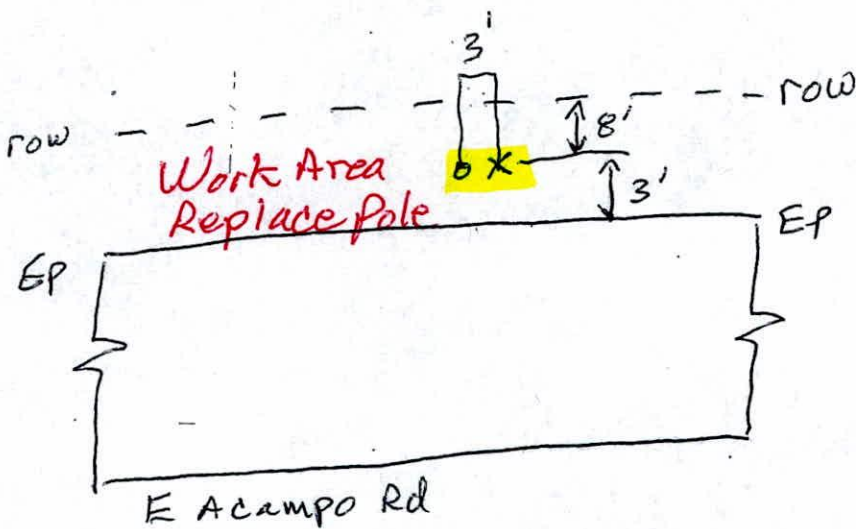 3'
row
row
8'
Work Area
Replace Pole
o x
3'
EP
EP
E Acampo Rd